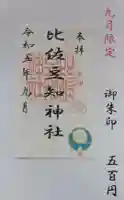 九月限定
御朱印
五百円
奉拝
比佐豆知神社
令和五年九月